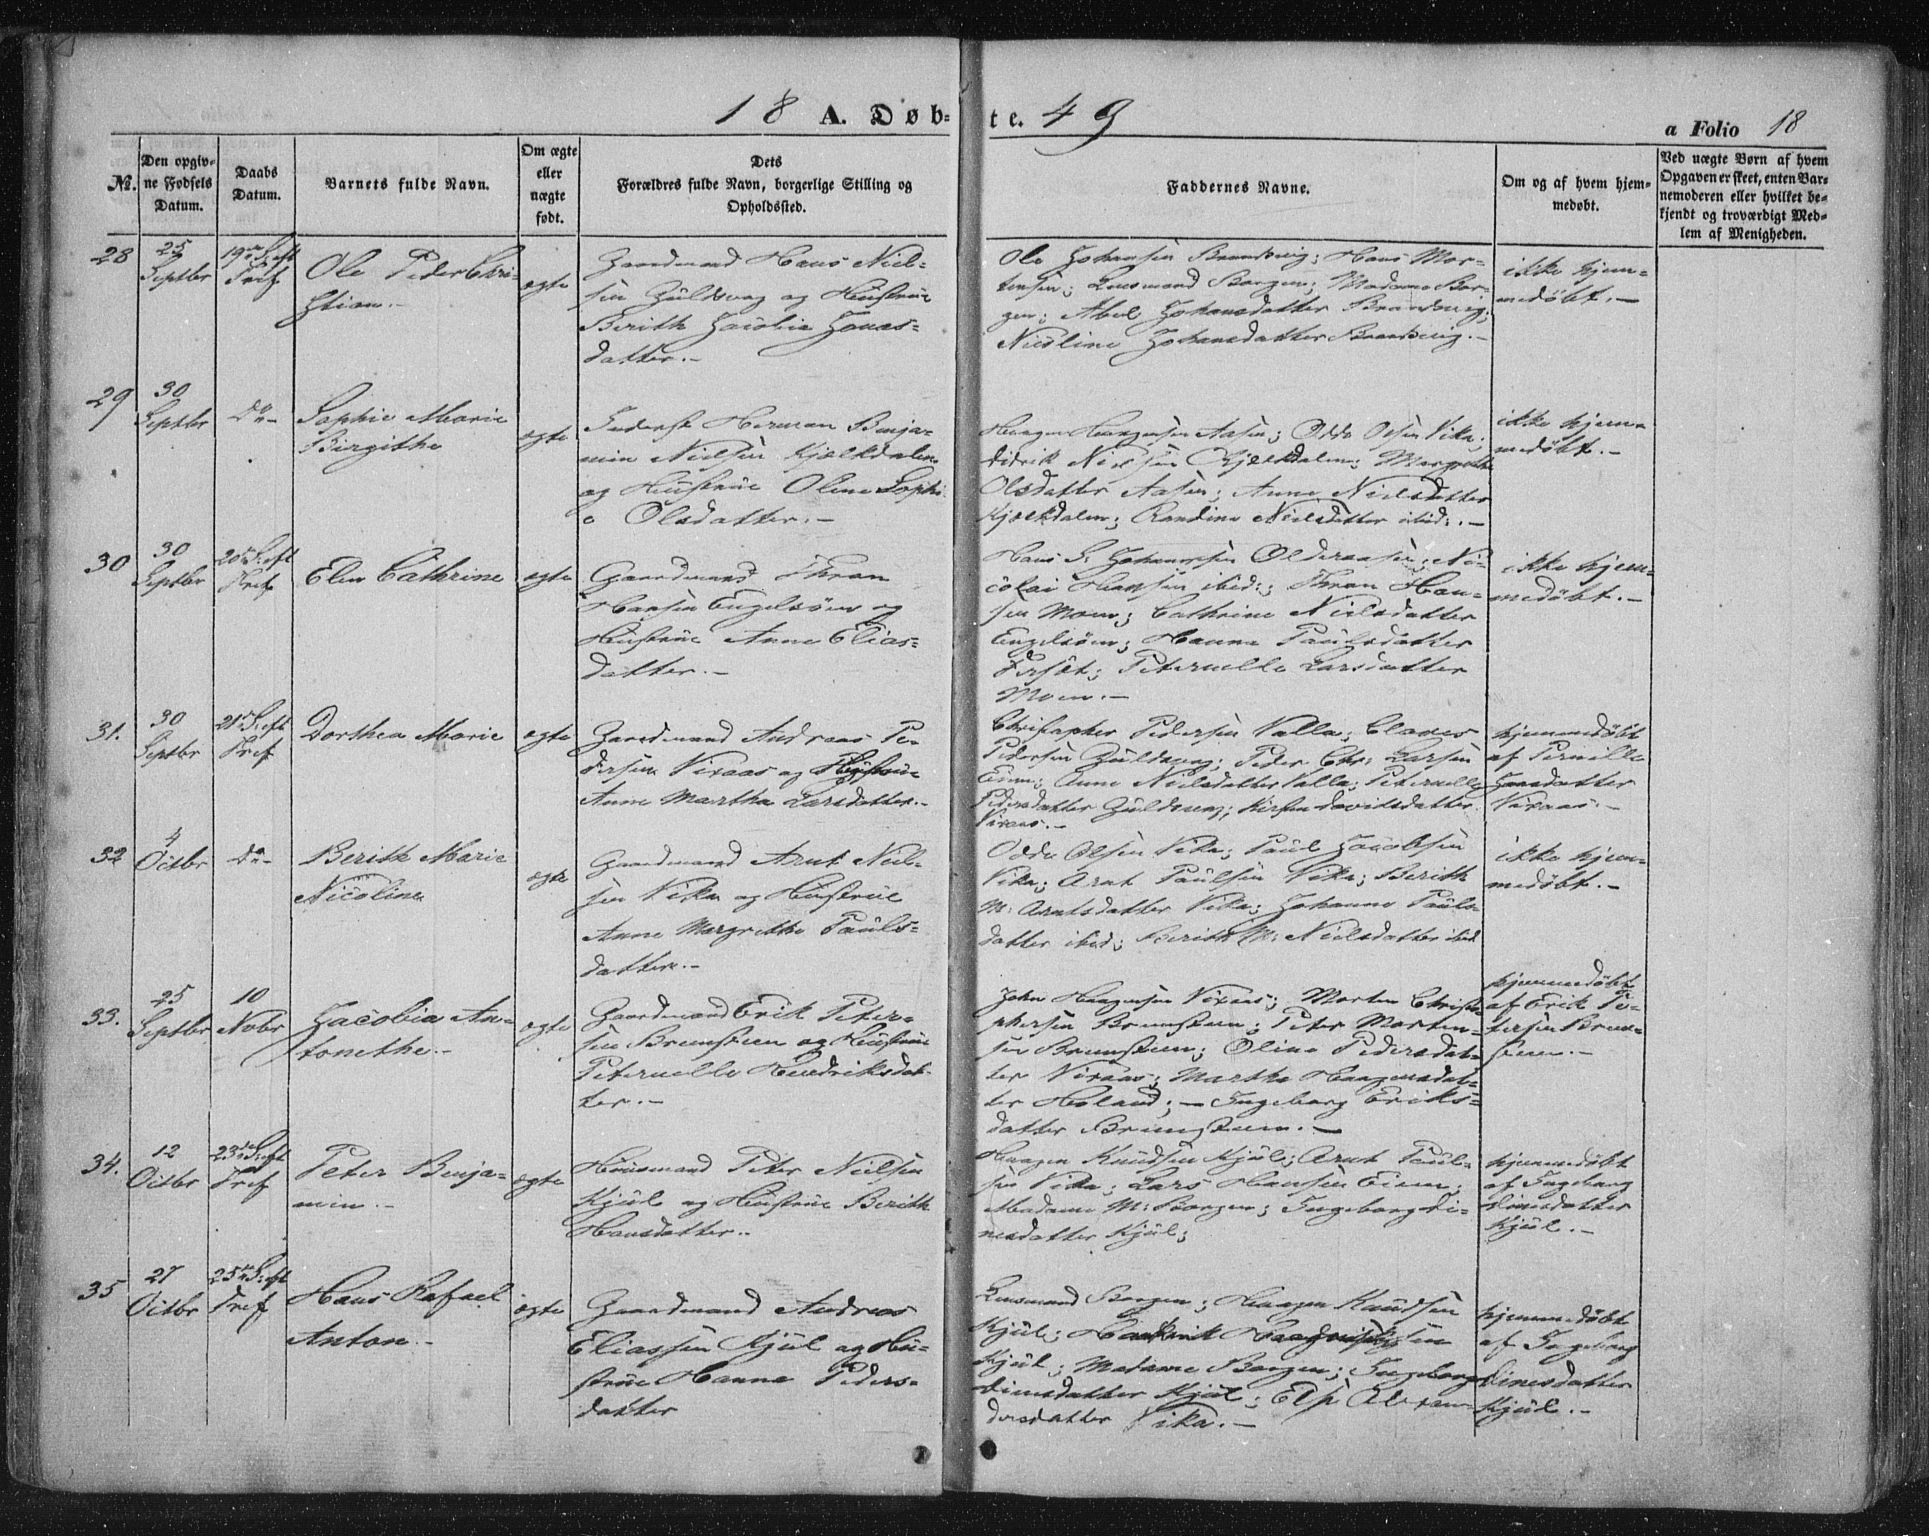 18 A. Døb-te. 49
a Folio 18
No.
Den opgiv-
ne Fødsels
Datum.
Daabs
Datum.
Barnets fulde Navn.
Om ægte
eller
uægte
født.
Dets
Forældres fulde Navn, borgerlige Stilling og
Opholdssted.
Faddernes Navne.
Om og af hvem hjem-
medøbt.
Ved uægte Børn af hvem
Opgaven er skeet, enten Bar-
nemoderen eller hvilket be-
kjendt og troværdigt Med-
lem af Menigheden.
28
25
Septbr
19de S: eft
Tref
Ole Peder Chri-
stian.-
ægte
Gaardmand Hans Niel-
sen Züldsvog og Hustrüe
Berith Jacobia Jonas-
datter.-
Ole Johansen Brandvig; Hans Mor-
tensen; Lensmand Borgen; Madame Bor-
gen; Abel Johansdatter Brandvig;
Nicoline Johansdatter Brandvig.-
ikke hjem-
medøbt.-
29
30
Septbr
Do-
Sophie Marie
Birgithe
ægte
Inderst Herman Benja-
min Nielsen Kjælkdalen
og Hustrüe Olene Sophi
e Olsdatter.-
Haagen Haagensen Aasen; Odde Olsen Vika;
Didrik Nielsen Kjælkdalen; Margrethe
Olsdatter Aasen; Anne Nielsdatter
Kjælkdalen; Randine Nielsdatter ibid:.-
ikke hjem-
medøbt.-
30
30
Septbr
20de S: eft
Tref
Elen Cathrine
ægte
Gaardmand Thran
Hansen Engelsöen og
Hustrüe Anne Elias-
datter.-
Hans S. Johannesen Olderaasen; Ni-
colai Hansen ibid:; Thran Han-
sen Moen; Cathrine Nielsdatter
Engelsöen; Hanna Paulsdatter
Forsæt; Peternelle Larsdatter
Moen.-
ikke hjem-
medøbt.-
31.
30
Septbr
21de S: eft
Tref
Dorthea Marie
ægte
Gaardmand Andreas Pe-
dersen Vixaas og Hustrüe
Anne Martha Larsdatter.-
Christopher Pedersen Valla; Claves
Pedersen Züldsvog; Peder Chr: Larsen
Eien; Anne Nielsdatter Valla; Peternelle
Pedersdatter Züldsvog; Kirsten Davidsdatter
Vixaas.-
hjemmedøbt
af Pernille
Hansdatter
Vixaas.-
32
4
Octbr
Do-
Berith Marie
Nicoline
ægte
Gaardmand Arnt Niel-
sen Vika og Hustrüe
Anne Margrethe Paüls-
datter.-
Odde Olsen Vika; Paul Jacobsen
Vika; Arnt Paülsen Vika; Berith
M: Arntsdatter Vika; Johanna Paüls-
datter ibid; Berith M: Nielsdatter ibid
ikke hjem-
medøbt.-
33.
25
Septbr
10
Nobr
Jacobia An-
tonethe.-
ægte
Gaardmand Erik Peter-
sen Brunsteen og Hustrüe
Peternelle Hendriksdat-
ter.-
John Haagensen Vixaas; Morten Christo
phersen Brunsteen; Peter Morten-
sen Brunsteen; Oline Pedersdat-
ter Vixaas; Martha Haagensdat-
ter Høland; - Ingeborg Eriks-
datter Brunsteen.-
hjemmedøbt
af Erik Pe-
tersen Brun-
steen.-
34.
12
Octbr
23de S: eft
Tref
Peter Benja-
min.-
ægte
Huusmand Peter Nielsen
Kjül og Hustrüe Berith
Hansdatter..
Haagen Knüdsen Kjül; Arnt Paül-
sen Vika; Lars Hansen Eien;
Madame M: Borgen; Ingeborg Di-
nesdatter Kjül;
hjemmedøbt
af Ingeborg
Dinesdatter
Kjül.-
35
27
Octbr
25de S: eft
Tref
Hans Rafael
Anton.-
ægte
Gaardmand Andreas
Eliassen Kjül og Hü-
strüe Hanna Peders-
datter
Lensmand Borgen; Haagen Knüdsen
Kjül;
Kjül; Madame Borgen; Ingeborg
Dinesdatter Kjül; Elsi Alexan-
dersdatter Vika.-
hjemmedøbt
af Ingeborg
Dinesdatter
Kjül.-